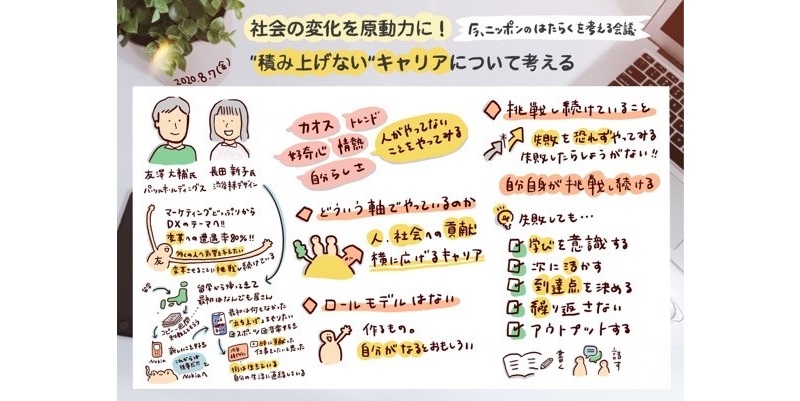 社会の変化を原動力に！
今、ニッポンのはたらくを考える会議
"積み上げない"キャリアについて考える
2020.8.7(金)
友澤大輔氏
パーソルホールディングス
長田新子氏
渋谷未来デザイン
マーケティングどっぷりから
DXのテーマへ!!
変革への遭遇率80%!!
友
変革させることに挑戦し続けている
留学
留学から帰ってきて
最初はなんでも屋さん
コピー1週間
新しいことする
Nokia
これからは
Nokiaへ
最初は何もなかった
「立ち上げ」をやりたい
スポーツ
音楽する
街は生きている
自分の生活に直結している
カオス
トレンド
好奇心
情熱
自分らしさ
人がやってない
ことをやってみる
どういう軸でやっているのか
人、社会への貢献
横に広げるキャリア
ロールモデルはない
作るもの。
自分がなるとおもしろい
挑戦し続けていること
失敗を恐れずやってみる
失敗したらしょうがない!!
自分自身が挑戦し続ける
失敗しても…
学びを意識する
次に活かす
到達点を決める
繰り返さない
アウトプットする
書く
話す